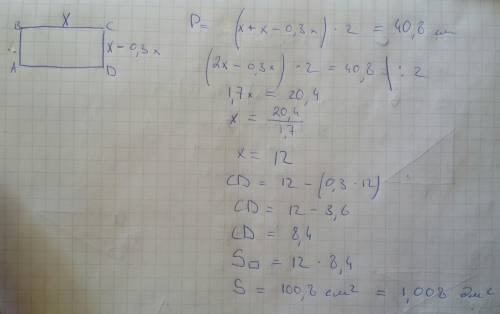 B x C
x - 0,3x
A D
P = (x + x - 0,3x) · 2 = 40,8 см
(2x - 0,3x) · 2 = 40,8 | : 2
1,7x = 20,4
x = 20,4 / 1,7
x = 12
CD = 12 - (0,3 · 12)
CD = 12 - 3,6
CD = 8,4
S▭ = 12 · 8,4
S = 100,8 см² = 1,008 дм²